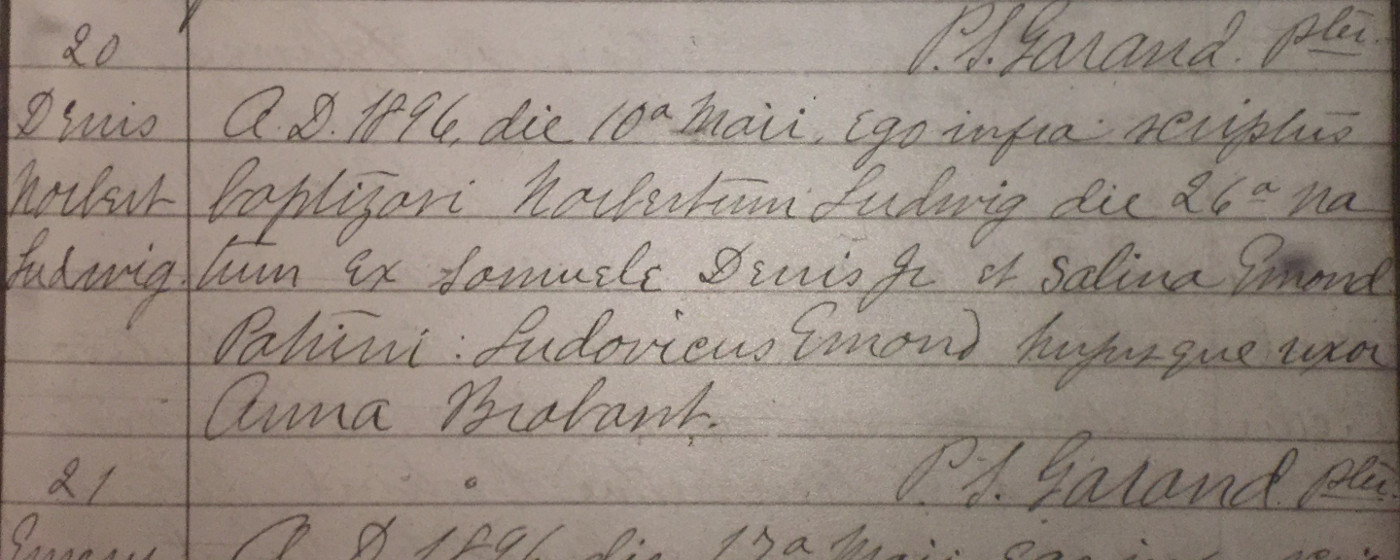 20 P. S. Garand. pter.
Denis A. D. 1896, die 10a Maii, Ego infra scriptus
Norbert baptizavi Norbertum Ludwig die 26a na
Ludwig. tum ex Samuele Denis Jr et Salina Emond
Patrini : Ludovicus Emond hujusque uxor
Anna Brabant.
21 P. S. Garand. pter.
A. D. 1896 die 17a Maii Ego